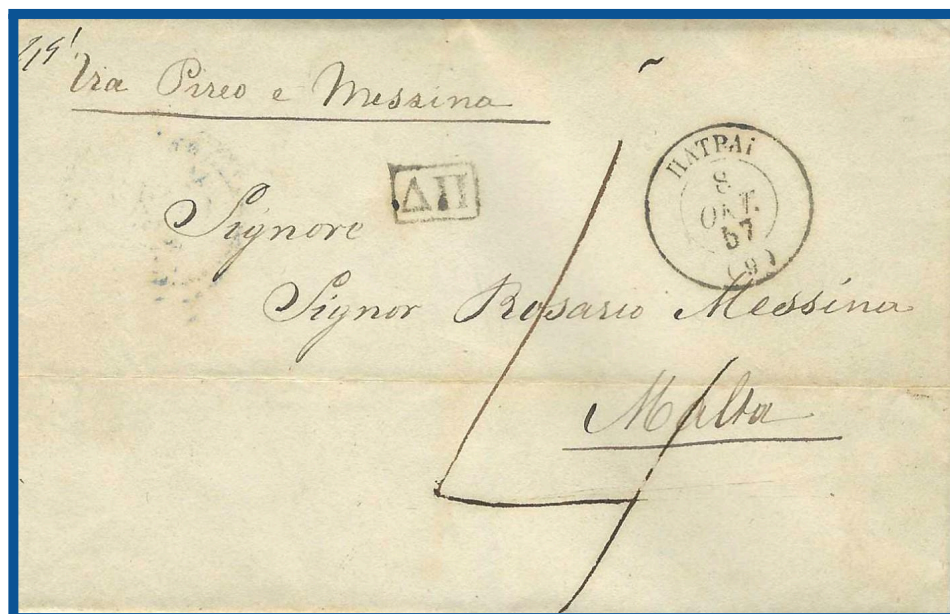 Via Pireo e Messina
ΠΑΤΡΑΙ
8
ΟΚΤ.
57
(9)
ΔΠ
Signore
Signor Rosario Messina
Malta
4